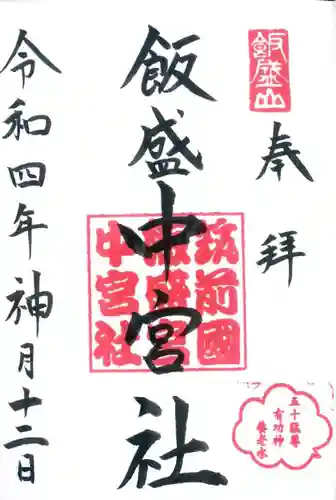 飯盛山
奉拝
飯盛中宮社
筑前國
飯盛宮
中宮社
令和四年神月十二日
五十猛尊
有功神
養老水